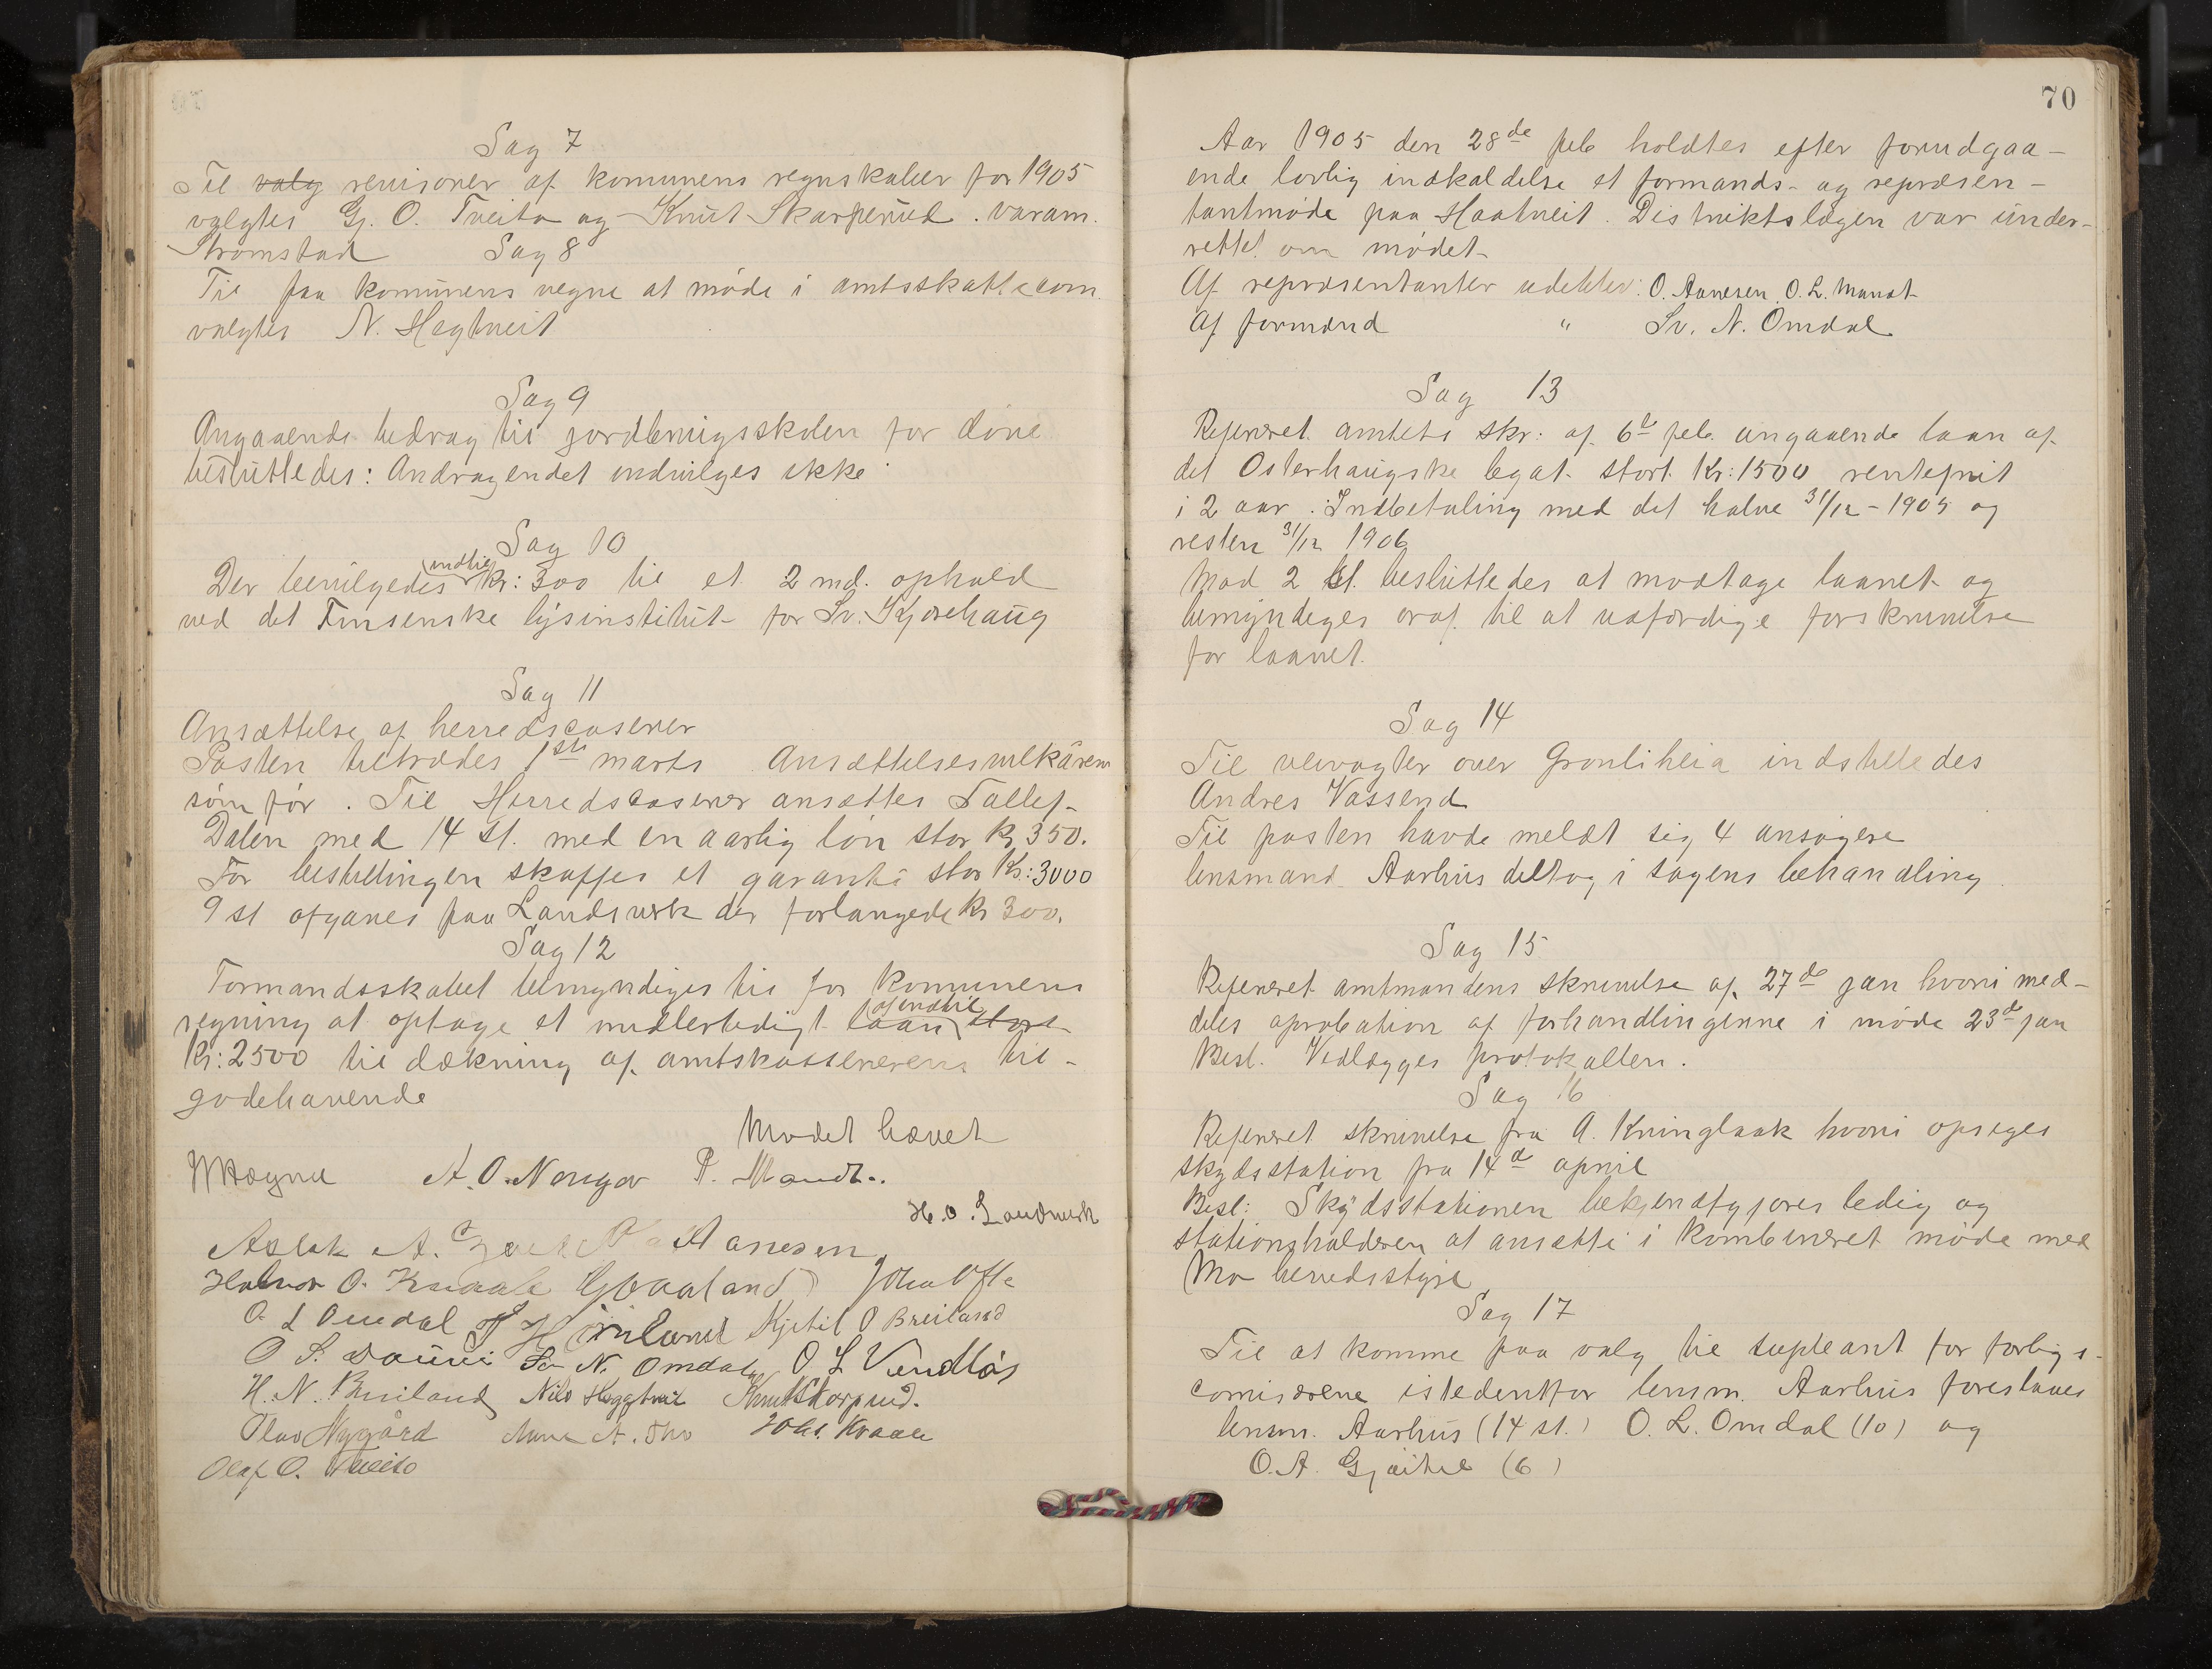 Sag 7
Til valg revisorer af komunens regnskaber for 1905
valgtes Gj. O. Tveito og Knut Skarperud. varam.
Strømstad Sag 8
Til paa komunens vegne at møde i amtsskattecom.
valgtes N. Hegtveit
Sag 9
Angaaende bedrag til jordbrugsskolen for døve
besluttedes: Andragendet indvilges ikke
Sag 10
Der bevilgedes indtil kr: 300 til et 2 md. ophold
ved det Finsenske lysinstitut for Sv. Kjosehaug
Sag 11
Ansættelse af herredscaserer
Posten tiltrædes 1ste marts Ansættelsesvilkåren
som før. Til Herredscaserer ansættes Tallef
Dalen med 14 st. med en aarlig løn stor kr 350.
For bestillingen skaffes et garanti stor Kr: 3000
9 st afgaves paa Landsverk der forlangede kr 300.
Sag 12
Formandsskabet bemyndiges til for komunens
regning at optage et midlertidigt laan af indtil stort
Kr: 2500 til dækning af amtskassererens til-
godehavende
Mødet hævet
A. O. Norgar P. Mandt.
H. O. Landsverk
Aslak A. Aanesen
Halvor O. Kraale John Ofte
O. L Omdal Kjetil O Breiland
O S. Sv N. Omdal O. L Vindlås
H. N. Breiland Nils Heggtveit Knut Skarprud.
Olav Nygård Johs. Kraale
Olaf O. Tveito
70
Aar 1905 den 28de feb holdtes efter forudgaa-
ende lovlig indkaldelse et formands- og repræsen-
tantmøde paa Haatveit. Distriktslægen var under-
rettet om mødet-
Af repræsentanter udeblev: O. Aanesen, O. L. Mandt
Af formænd " Sv. N. Omdal
Sag 13
Refereret amtets skr: af 6te feb. angaaende laan af
det Osterhaugske legat stort Kr: 1500 rentefrit
i 2 aar. Indbetaling med det halve 31/12 - 1905 og
resten 31/12 1906
Mod 2 st. besluttedes at modtage laanet og
bemyndiges ordf. til at udfærdige forskrivelse
for laanet.
Sag 14
Til veivogter over Grønliheia indstilledes
Andres Vassend
Til posten havde meldt sig 4 ansøgere
lensmand Aarhus deltog i sagens behandling.
Sag 15
Refereret amtmandens skrivelse af 27de jan hvori med-
deles aprobation af forhandlingerne i møde 23de jan
Besl. Vedlægges protokollen.
Sag 16
Refereret skrivelse fra A. Kvinglaak hvori opsiges
skydsstation fra 14de april
Besl: Skydsstationen bekjendtgjøres ledig og
stationsholderen at ansætte i kombineret møde med
Mo herredsstyre
Sag 17
Til at komme paa valg til supleant for forligs-
comisærene istedentfor lensm. Aarhus foreslaaes
lensm. Aarhus (14 st.) O. L. Omdal (10) og
O. A. Gjeitil (6)